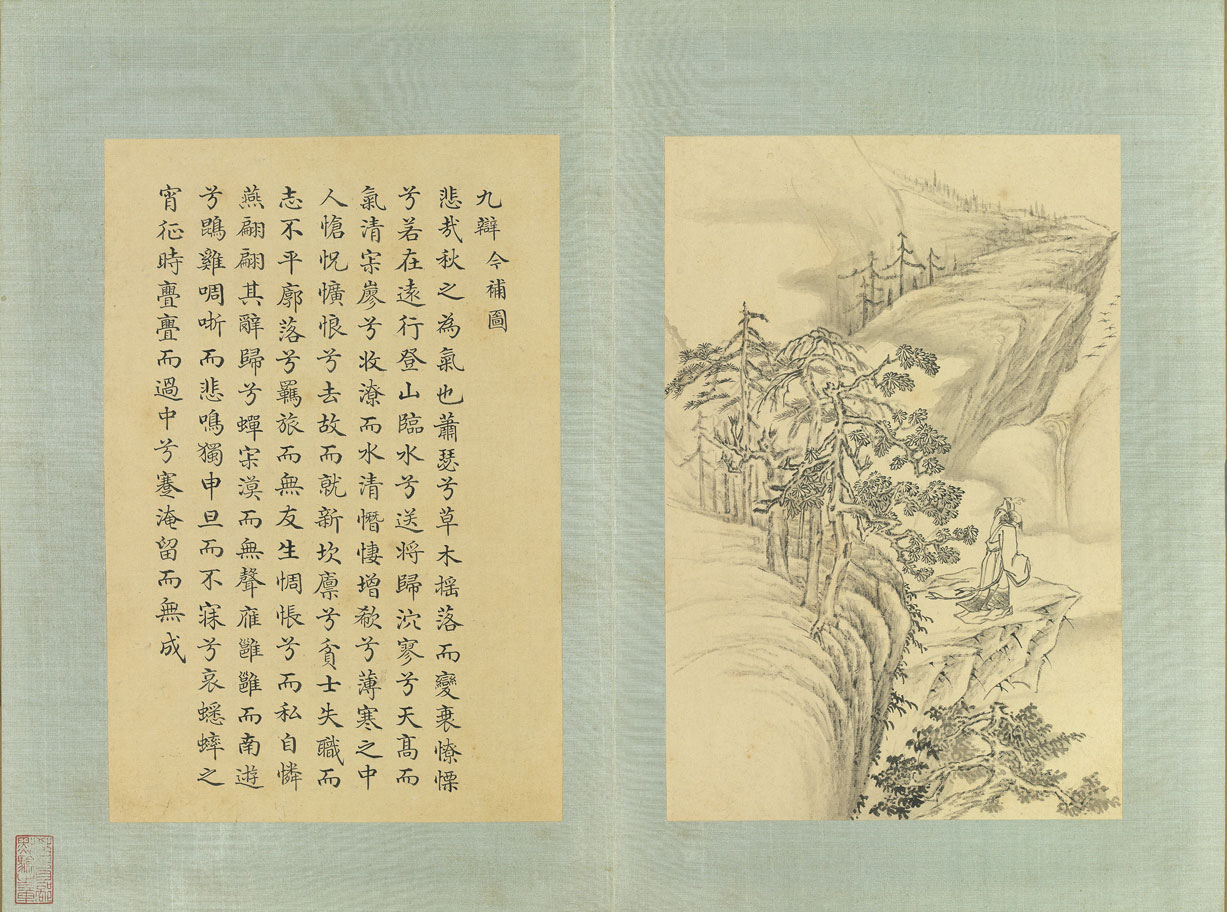 九辯 今補圖
悲哉秋之為氣也蕭瑟兮草木搖落而變衰憭慄
兮若在遠行登山臨水兮送將歸泬寥兮天高而
氣清寂寥兮收潦而水清憯悽增欷兮薄寒之中
人愴怳懭悢兮去故而就新坎廩兮貧士失職而
志不平廓落兮羈旅而無友生惆悵兮而私自憐
燕翩翩其辭歸兮蟬寂漠而無聲雁雝雝而南遊
兮鵾雞啁哳而悲鳴獨申旦而不寐兮哀蟋蟀之
宵征時亹亹而過中兮蹇淹留而無成